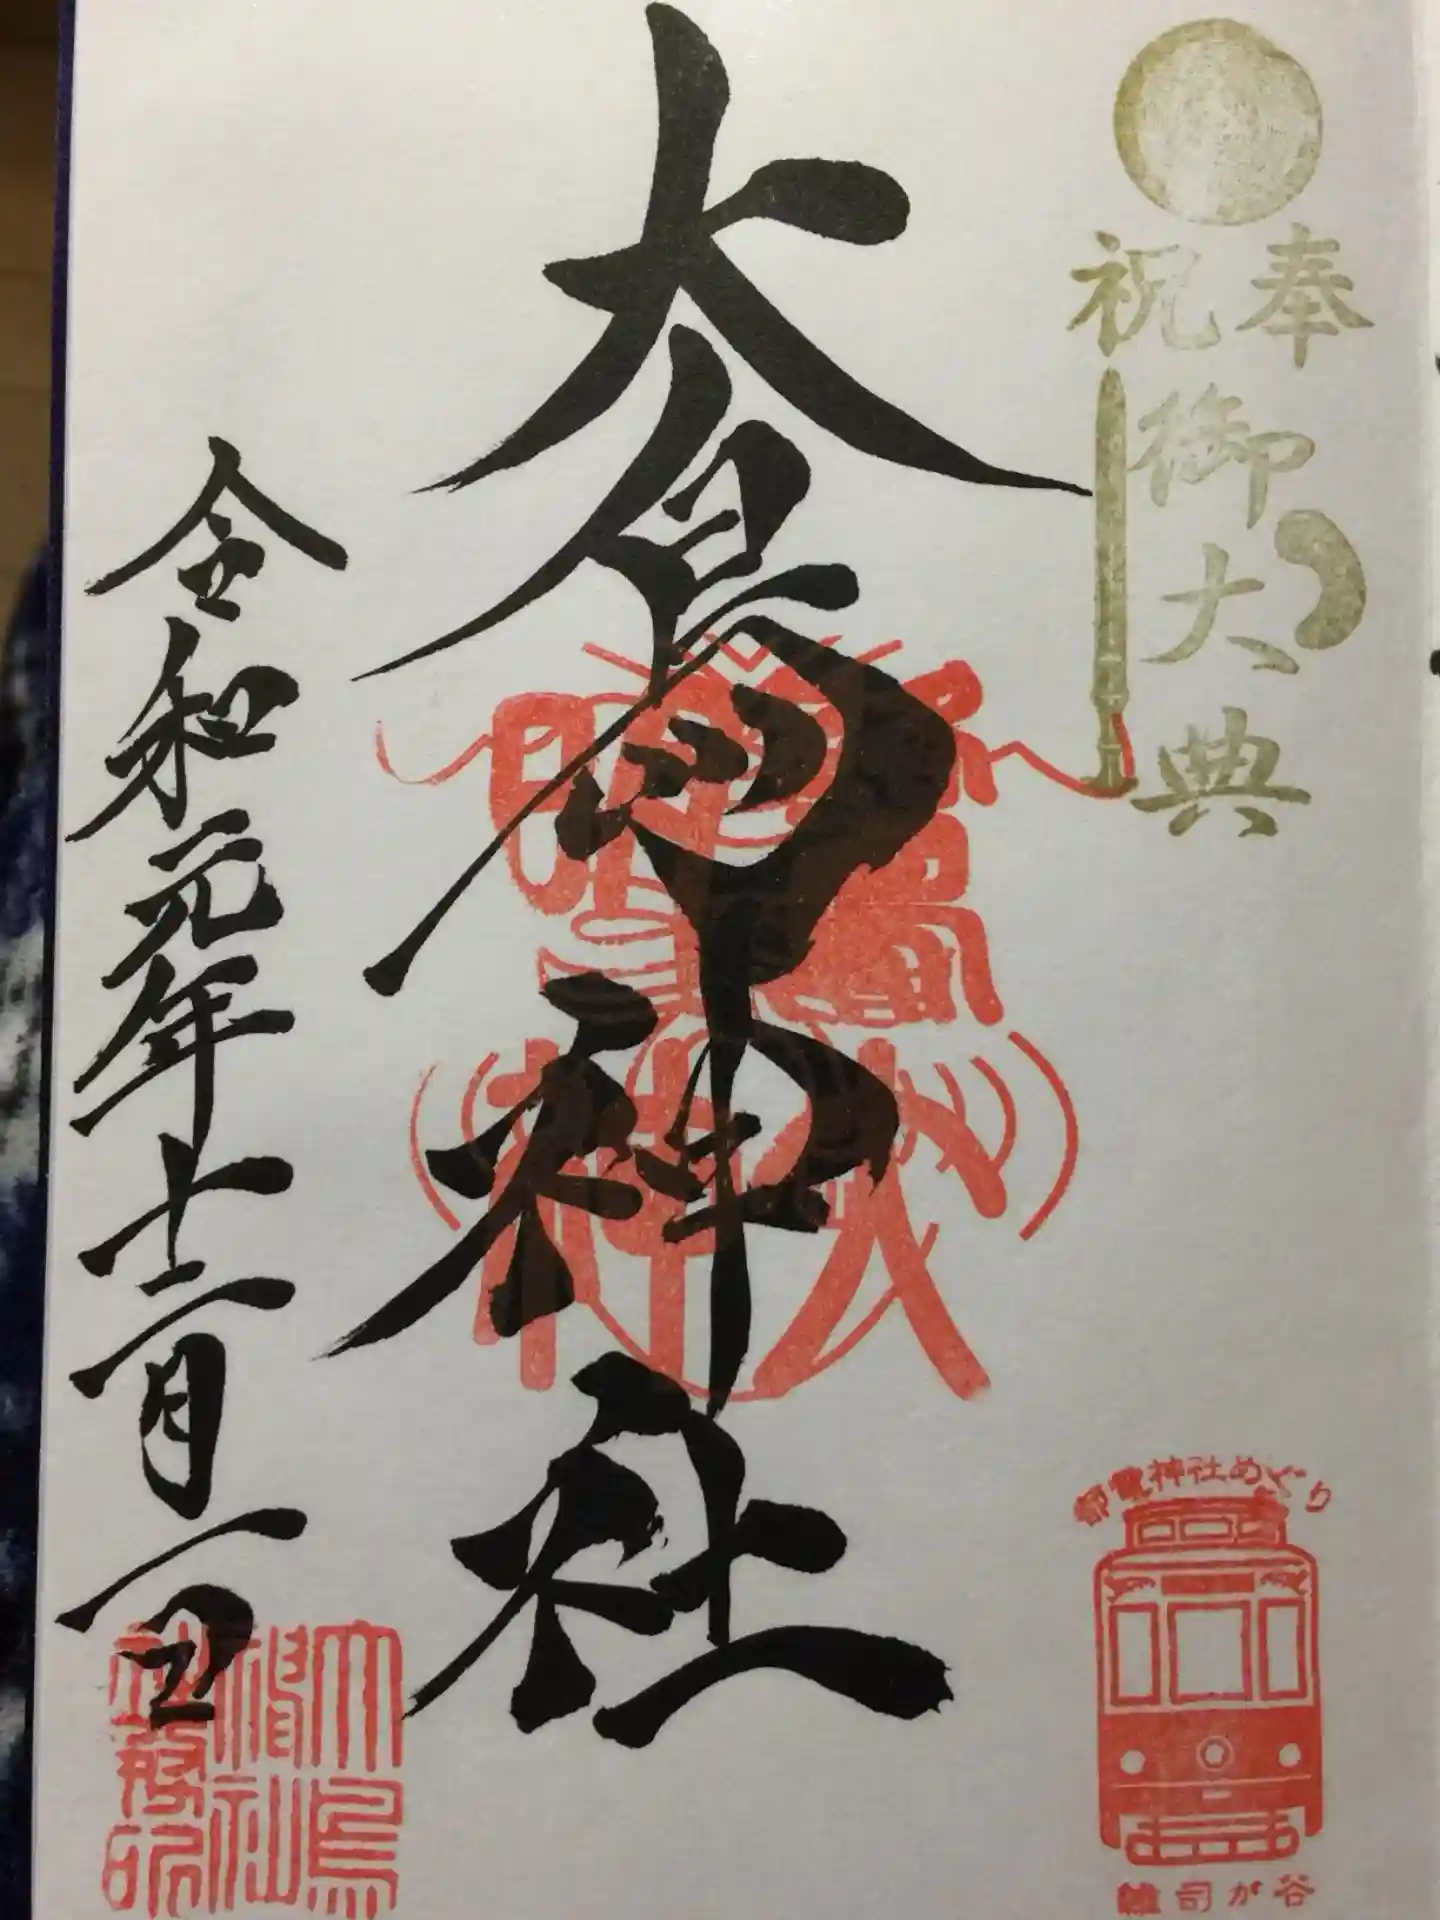 奉祝
御大典
大鳥神社
令和元年十二月一日
都電神社めぐり
雑司が谷
大鳥
神社
社務所